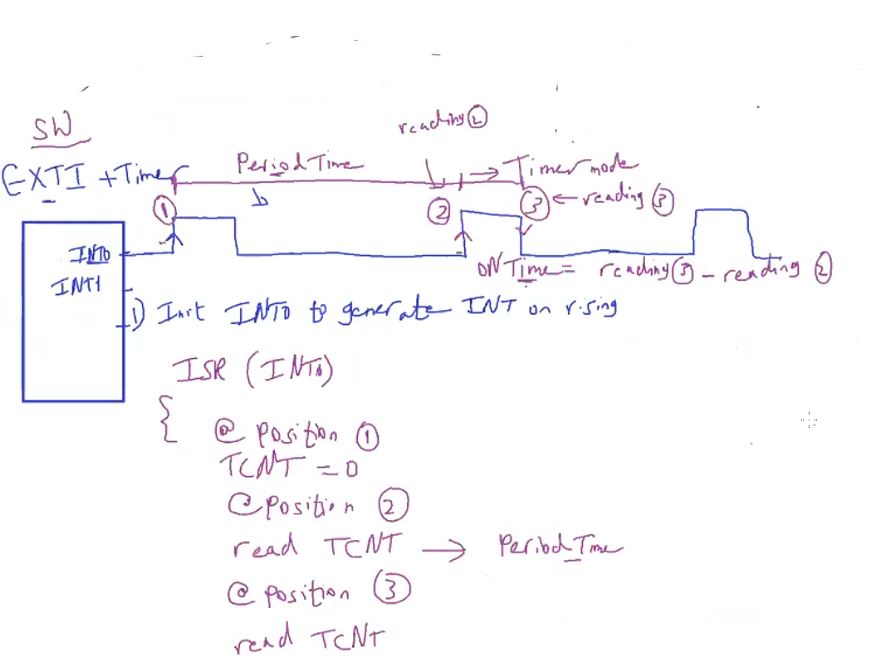 SW
reading ②
EXTI + Timer
Period Time
→ Timer mode
①
②
③ ← reading ③
INT0
ON Time = reading ③ - reading ②
INT1
1) Init INT0 to generate INT on rising
ISR (INT0)
{
@ position ①
TCNT = 0
@ position ②
read TCNT → Period_Time
@ position ③
read TCNT